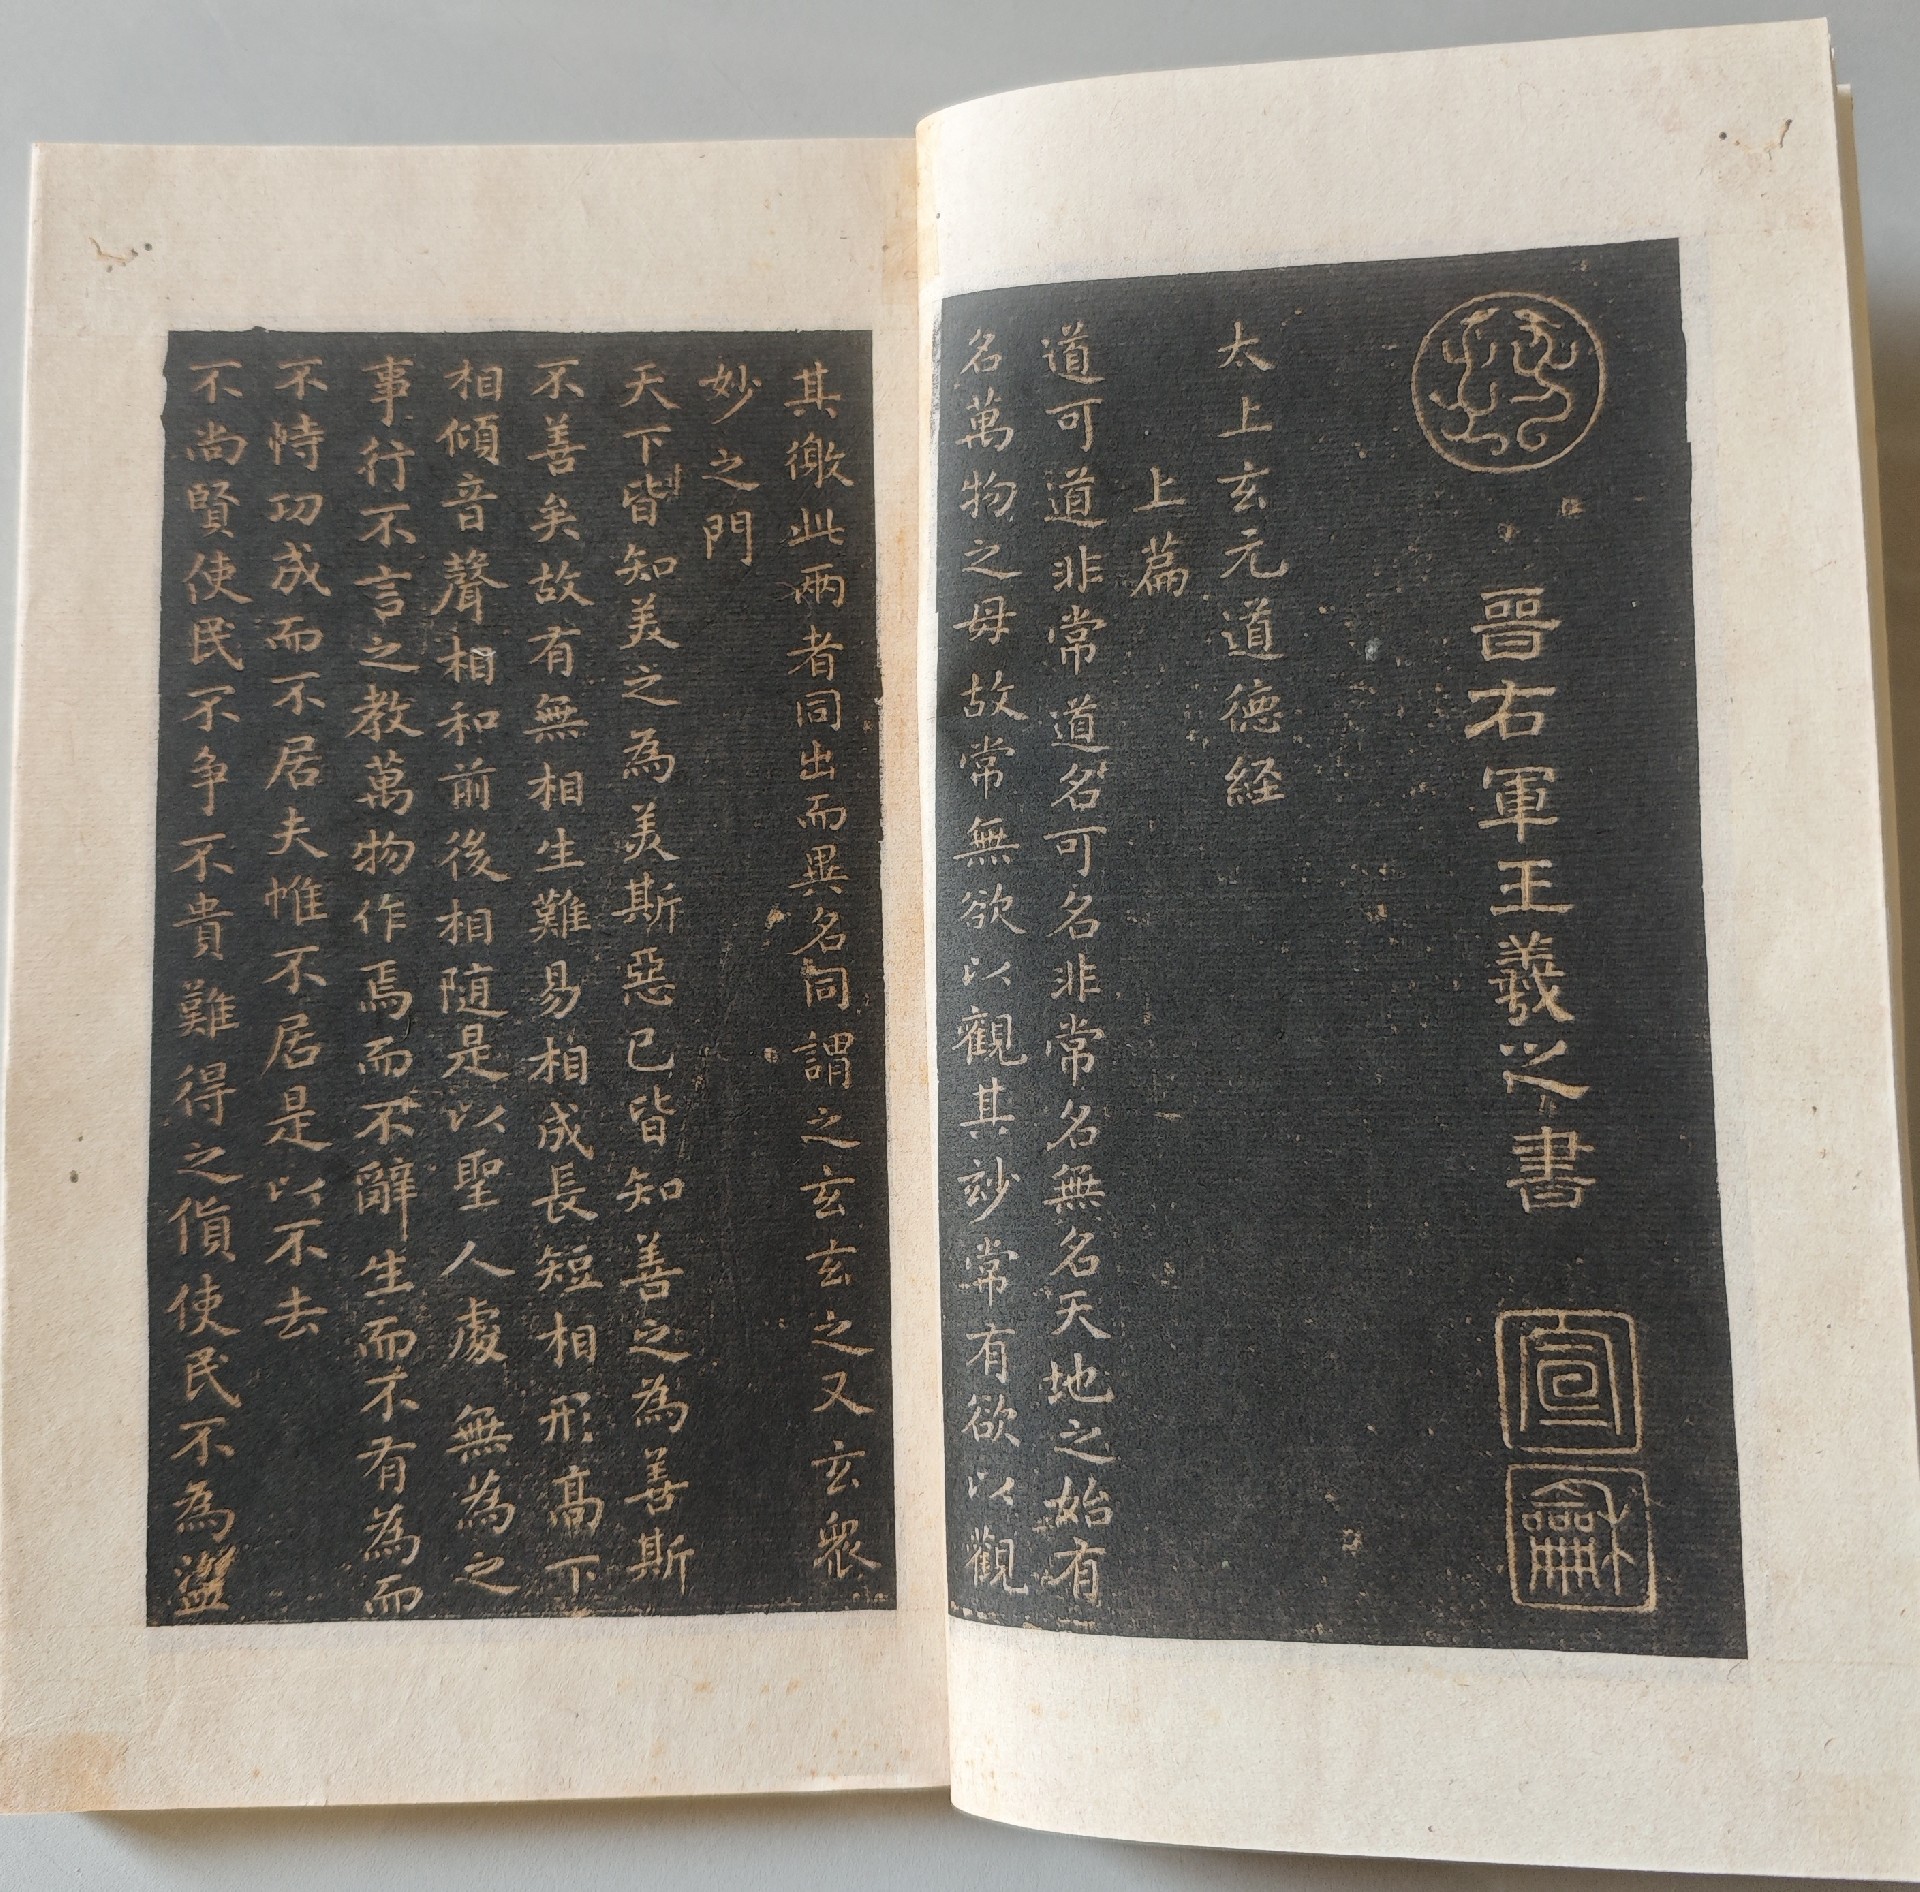 晉右軍王羲之書
宣
龢
太上玄元道德経
上篇
道可道非常道名可名非常名無名天地之始有
名萬物之母故常無欲以觀其玅常有欲以觀
其徼此兩者同出而異名同謂之玄玄之又玄衆
妙之門
天下皆知美之為美斯惡已皆知善之為善斯
不善矣故有無相生難易相成長短相形高下
相傾音聲相和前後相隨是以聖人處無為之
事行不言之教萬物作焉而不辭生而不有為而
不恃功成而不居夫惟不居是以不去
不尚賢使民不争不貴難得之貨使民不為盜